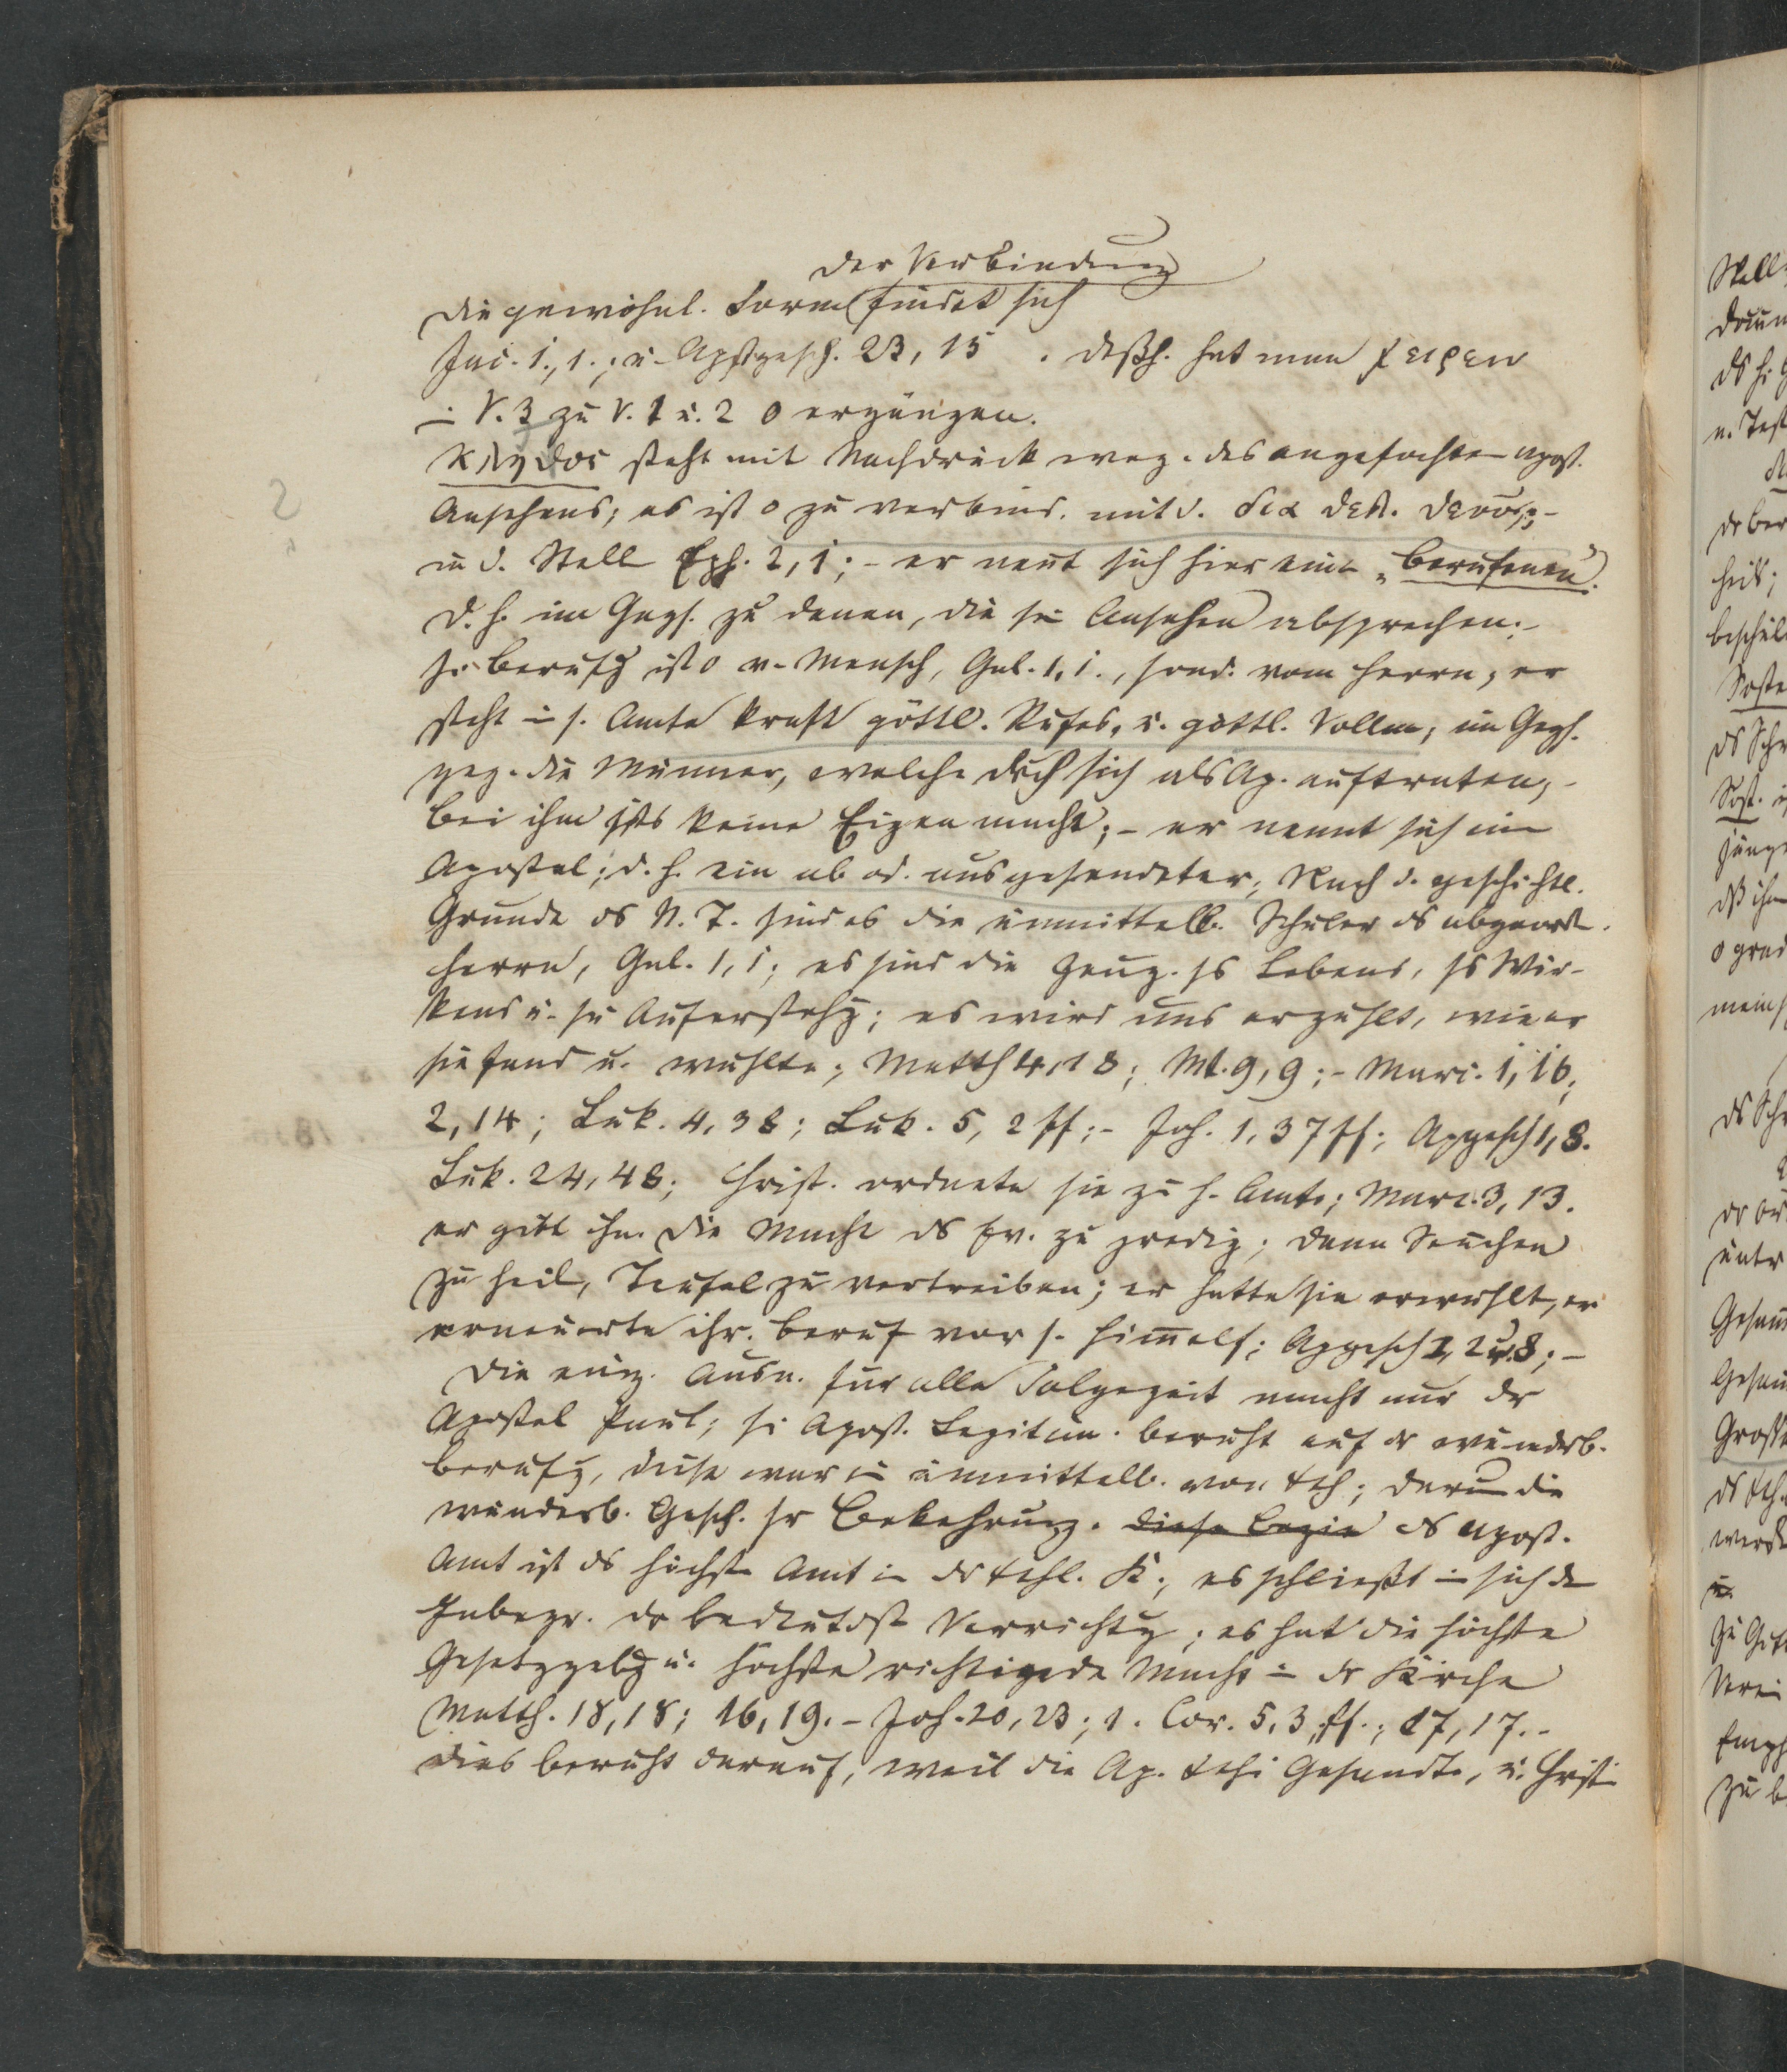 der Verbindung
die gewöhnl. Form findet sich
Jac. 1, 1.; u. Apstgesch. 23, 15 . dßh. hat man χειρειν
in V. 3 zu V. 1 u. 2 0 ergänzen.
κλητος steht mit Nachdruck weg. des angefochten apost.
Ansehens; es ist 0 zu verbind. mit d. δια θελ. θεου; -
in d. Stell Eph. 2, 1; - er nent sich hier ein „Berufenen".
d. h. im Ggs. zu denen, die sn Ansehen absprechen. -
Se Berufg ist 0 v. Mensch, Gal. 1, 1., sond. vom Herrn, er
steht in s. Amte kraft göttl. Rufes, u. göttl. Vollm, im Ggs.
geg. die Männer, welche dch sich als Ap. auftraten, -
bei ihm ists keine Eigenmacht; - er nennt sich ein
Apostel; d. h. ein ab od. ausgesendeter; Nach d. geschichtl.
Grunde ds N. T. sind es die unmittelb. Schüler ds
Herrn, Gal. 1, 1; es sind die Zeug. ss Lebens, ss Wir-
kens u. sr Auferstehg; es wird uns erzählt, wie er
sie fand u. wählte; Matth 4, 18; Mt. 9, 9; - Marc. 1, 16;
2, 14; Luk. 4, 38; Luk. 5, 2 ff; - Joh. 1, 37 ff; Apgesch 1, 8.
Luk. 24, 48; Christ. ordnete sie zu s. Amte; Marc. 3, 13.
er gibt ihn. die Macht ds Ev. zu predig; dann Seuchen
zu heil, Teufel zu vertreiben; er hatte sie erwählt, er
erneuerte ihr. Beruf vor s. Himmelf; Apgesch 1, 2 u. 8; -
Die einz. Ausn. für alle Folgezeit macht nur dr
Apostel Paul; se Apost. Legitim. beruht auf dr wunderb.
Berufg, diese war e unmittelb. von Xth; darum die
wunderb. Gesch. sr Bekehrung. ds Apost.
Amt ist ds höchste Amt in dr Xchl. K.; es schließt in sich dn
Inbegr. dr bedeutdst Verrichtg; es hat die höchste
Gesetzgebg u. höchste richtigede Macht in dr Kirche
Matth. 18, 18; 16, 19. - Joh. 20, 23; 1. Cor. 5, 3 ff.; 17, 17. -
dies beruht darauf, weil die Ap. Xthi Gesandte, u. Christi